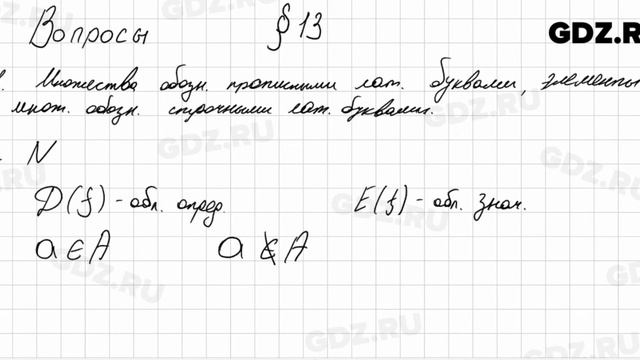 Вопросы § 13
GDZ.R
1. Множества обозн. прописными лат. буквами, элементы
множ. обозн. строчными лат. буквами.
N
D(f) - обл. опред. E(f) - обл. знач.
a ∈ A a ∉ A